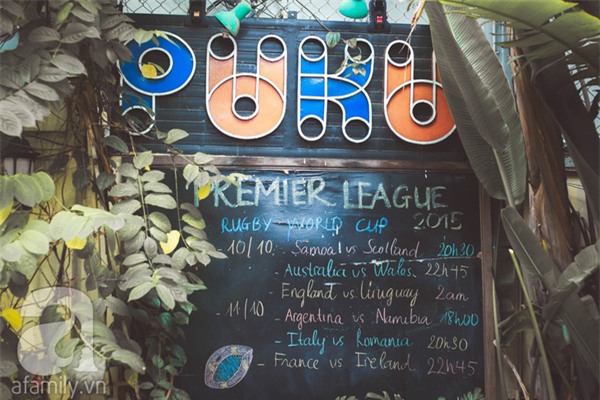 PUKU
PREMIER LEAGUE
RUGBY WORLD CUP 2015
- 10/10 - Samoa vs Scotland 20h30
- Australia vs Wales 22h45
England vs Uruguay 2am
- 11/10 - Argentina vs Namibia 18h00
- Italy vs Romania 20h30
- France vs Ireland 22h45
a
aFamily.vn